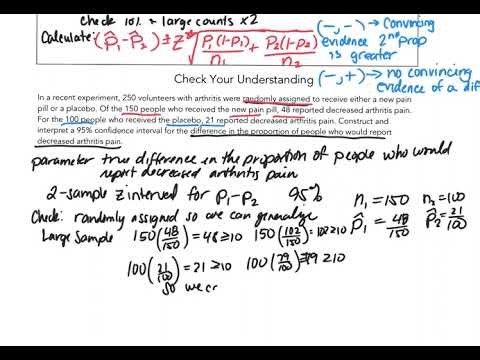 Check 10% & large counts x2
Calculate: (p̂₁-p̂₂) ± z* √ P₁(1-P₁)/n₁ + P₂(1-P₂)/n₂
(-,-) → Convincing
evidence 2nd prop
is greater
(-,+) → no convincing
evidence of a dif
Check Your Understanding
In a recent experiment, 250 volunteers with arthritis were randomly assigned to receive either a new pain
pill or a placebo. Of the 150 people who received the new pain pill, 48 reported decreased arthritis pain.
For the 100 people who received the placebo, 21 reported decreased arthritis pain. Construct and
interpret a 95% confidence interval for the difference in the proportion of people who would report
decreased arthritis pain.
parameter true difference in the proportion of people who would
report decreased arthritis pain
2-sample z interval for P₁-P₂ 95%
n₁=150 n₂=100
Check: randomly assigned so we can generalize
p̂₁ = 48/150 p̂₂ = 21/100
Large Sample 150(48/150)=48≥10 150(102/150)=102≥10
100(21/100)=21≥10 100(79/100)=79≥10
so we c